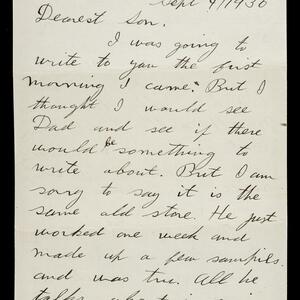 Sept 9/1930
Dearest Son.
I was going to
write to you the first
morning I came. But I
thought I would see
Dad and see if there
would be something to
write about. But I am
sorry to say it is the
same old store. He just
worked one week and
made up a few sampils
and was true. All he
talks about is